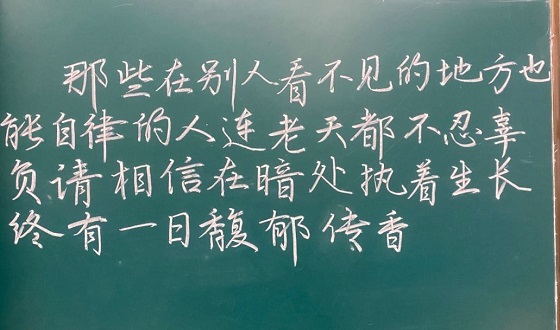 那些在别人看不见的地方也
能自律的人连老天都不忍辜
负请相信在暗处执着生长
终有一日馥郁传香